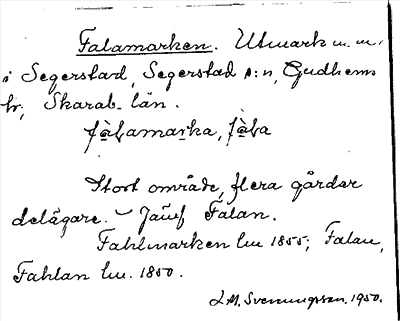 Falamarken. Utmark m. m.
i Segerstad, Segerstad s:n, Gudhems
hr, Skarab. län.
fàlamarka, fàla
Stort område, flera gårdar
delägare. – Jämf Falan.
Fahlmarken lm 1855; Falan,
Fahlan lm. 1850.
J. M. Svenungsson. 1950.